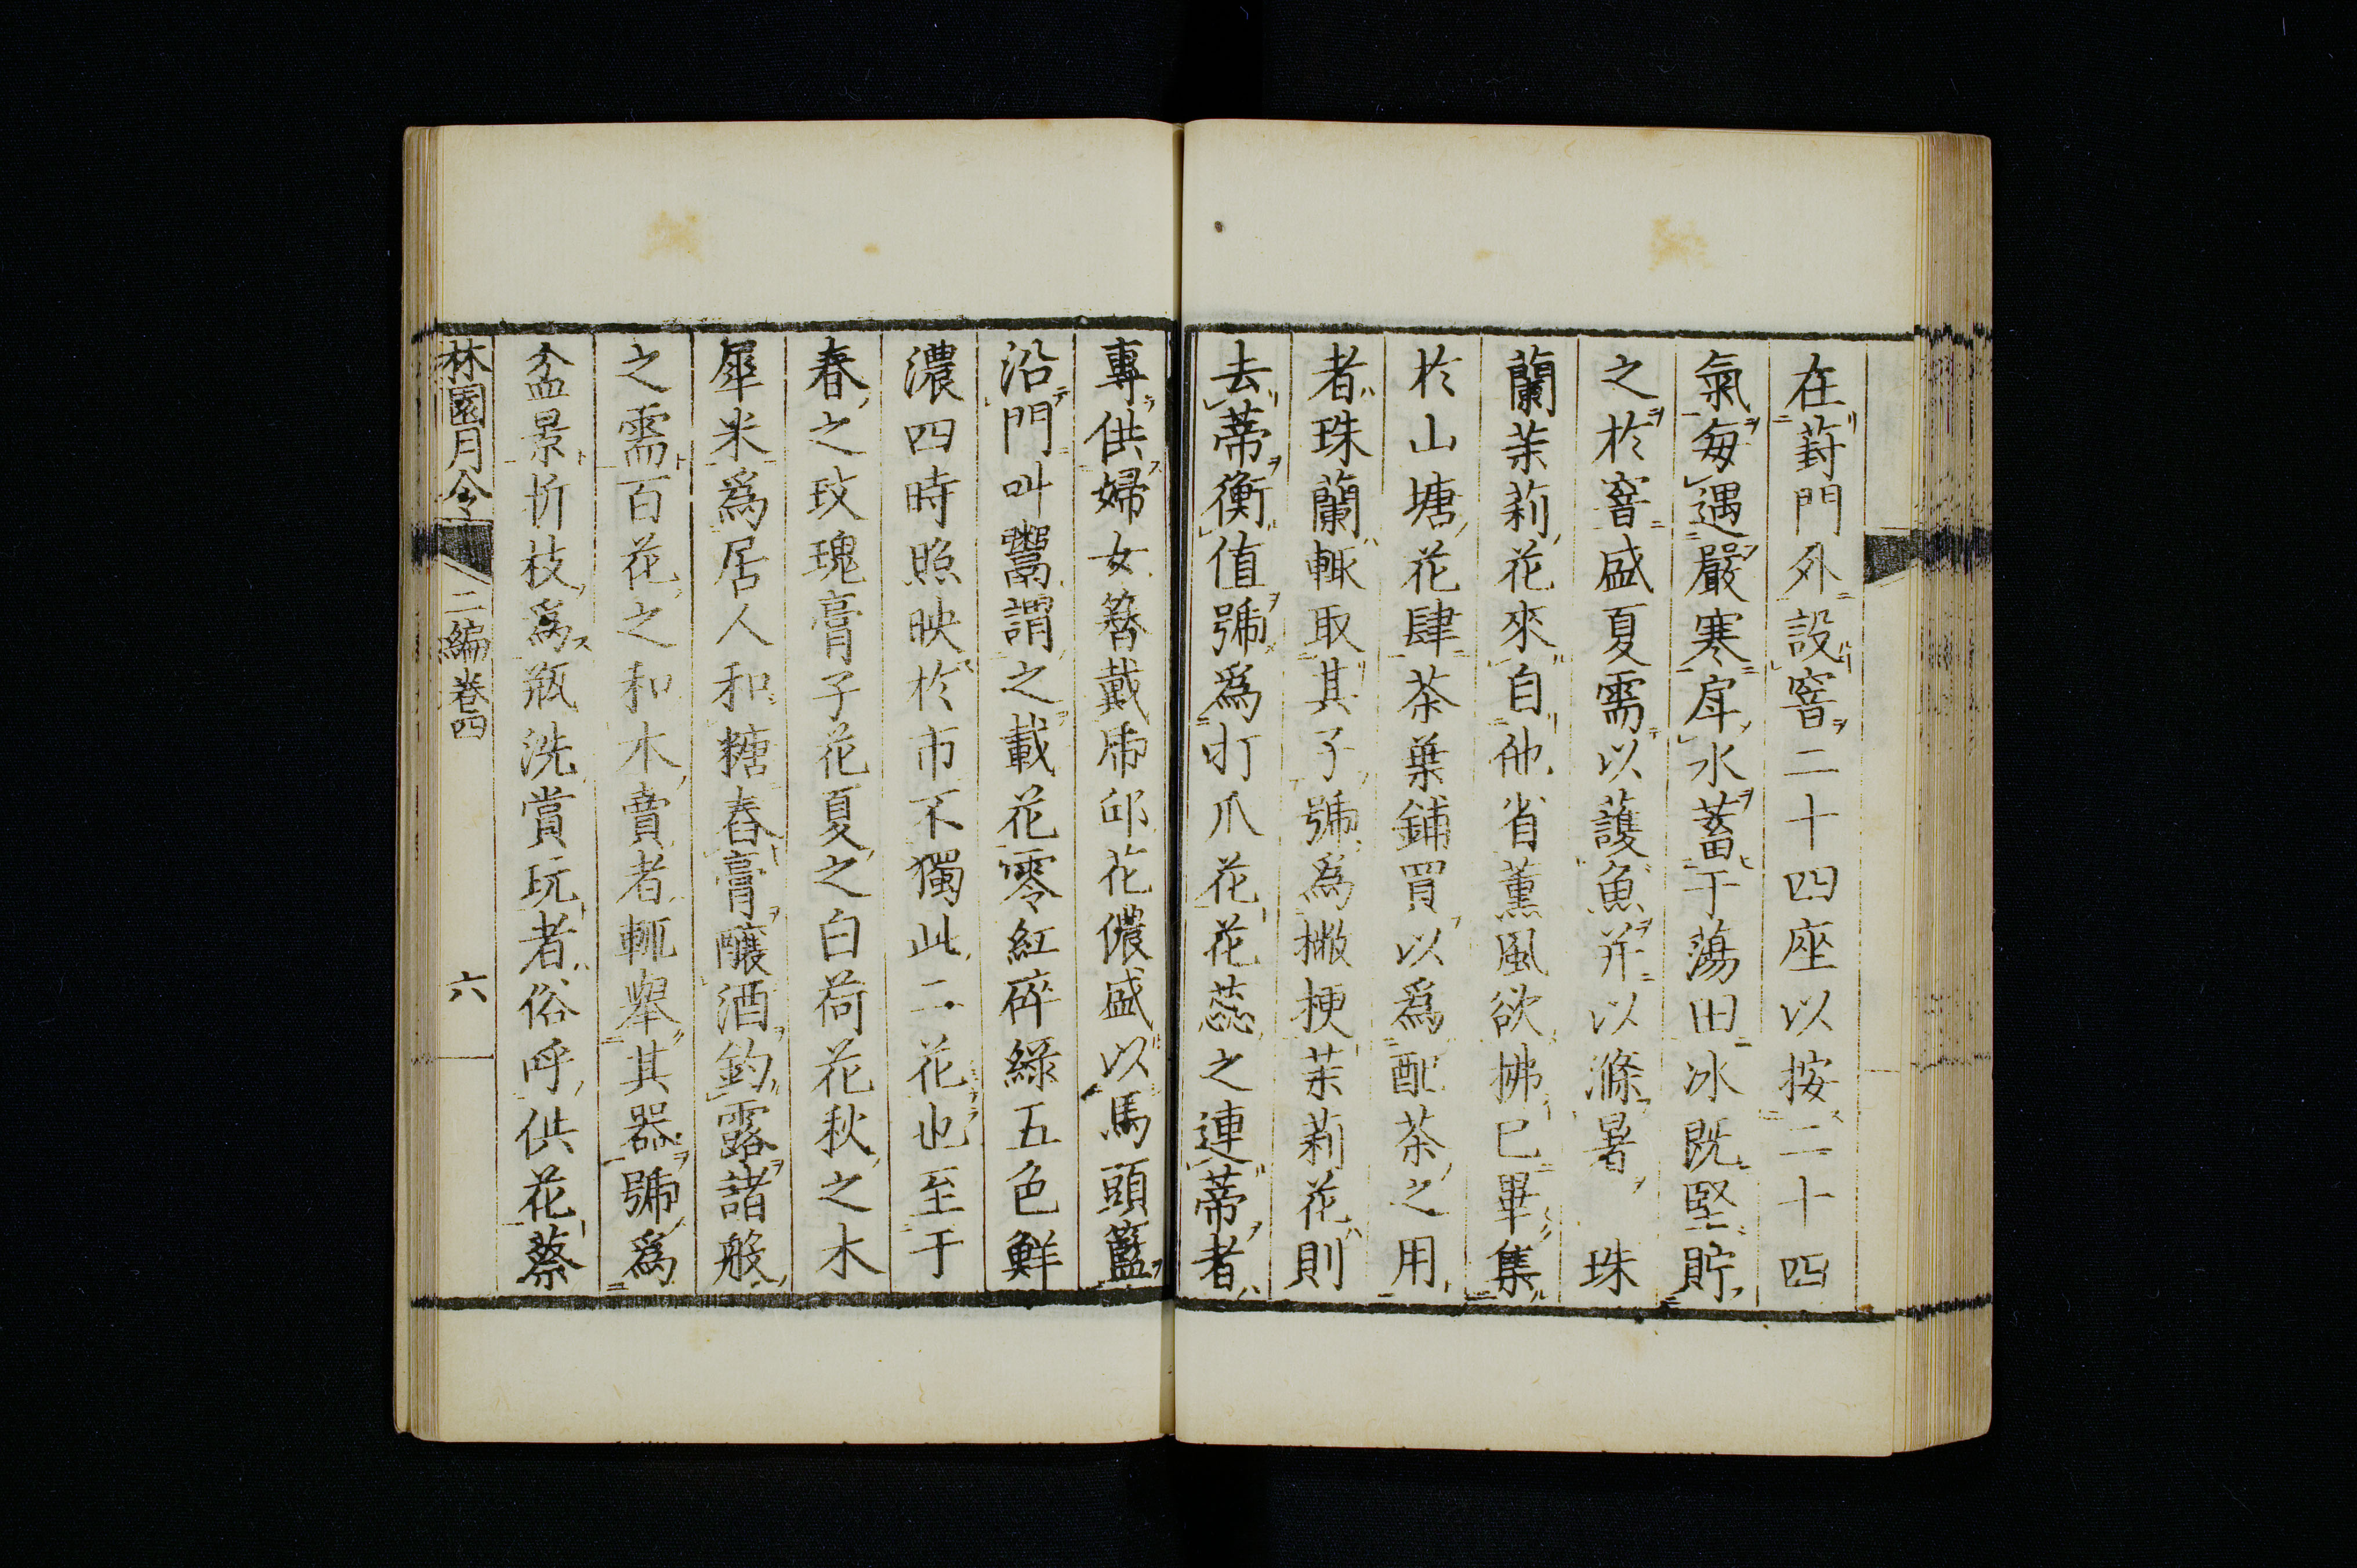 在葑門外設窨二十四座以按二十四
氣每遇嚴寒戽水蓄于蕩田冰既堅貯
之於窨盛夏需以護魚并以滌暑　珠
蘭茉莉花來自他省薰風欲拂已畢集
於山塘花肆茶葉鋪買以爲配茶之用
者珠蘭輒取其子號爲撇梗茉莉花則
去蒂衡值號爲打爪花花蕊之連蒂者
專供婦女簪戴虎邱花儂盛以馬頭籃
沿門叫鬻謂之戴花零紅碎綠五色鮮
濃四時照映於市不獨此二花也至于
春之玫瑰膏子花夏之白荷花秋之木
犀米爲居人和糖舂膏釀酒釣露諸般
之需百花之和木賣者輒舉其器號爲
盆景折枝爲瓶洗賞玩者俗呼供花蔡
林園月令　二編卷四　六